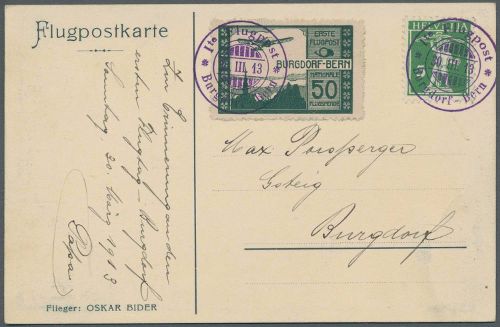 Flugpostkarte
Zur Erinnerung an den
ersten Flugtag Burgdorf
Samstag 30. März 1913
Papa
Flieger: OSKAR BIDER
ERSTE
FLUGPOST
BURGDORF-BERN
NATIONALE
50
FLUGSPENDE
Ite Flugpost
III. 13
HELVETIA
5
Ite Flugpost
30. III. 13
Burgdorf - Bern
Max
Gsteig
Burgdorf